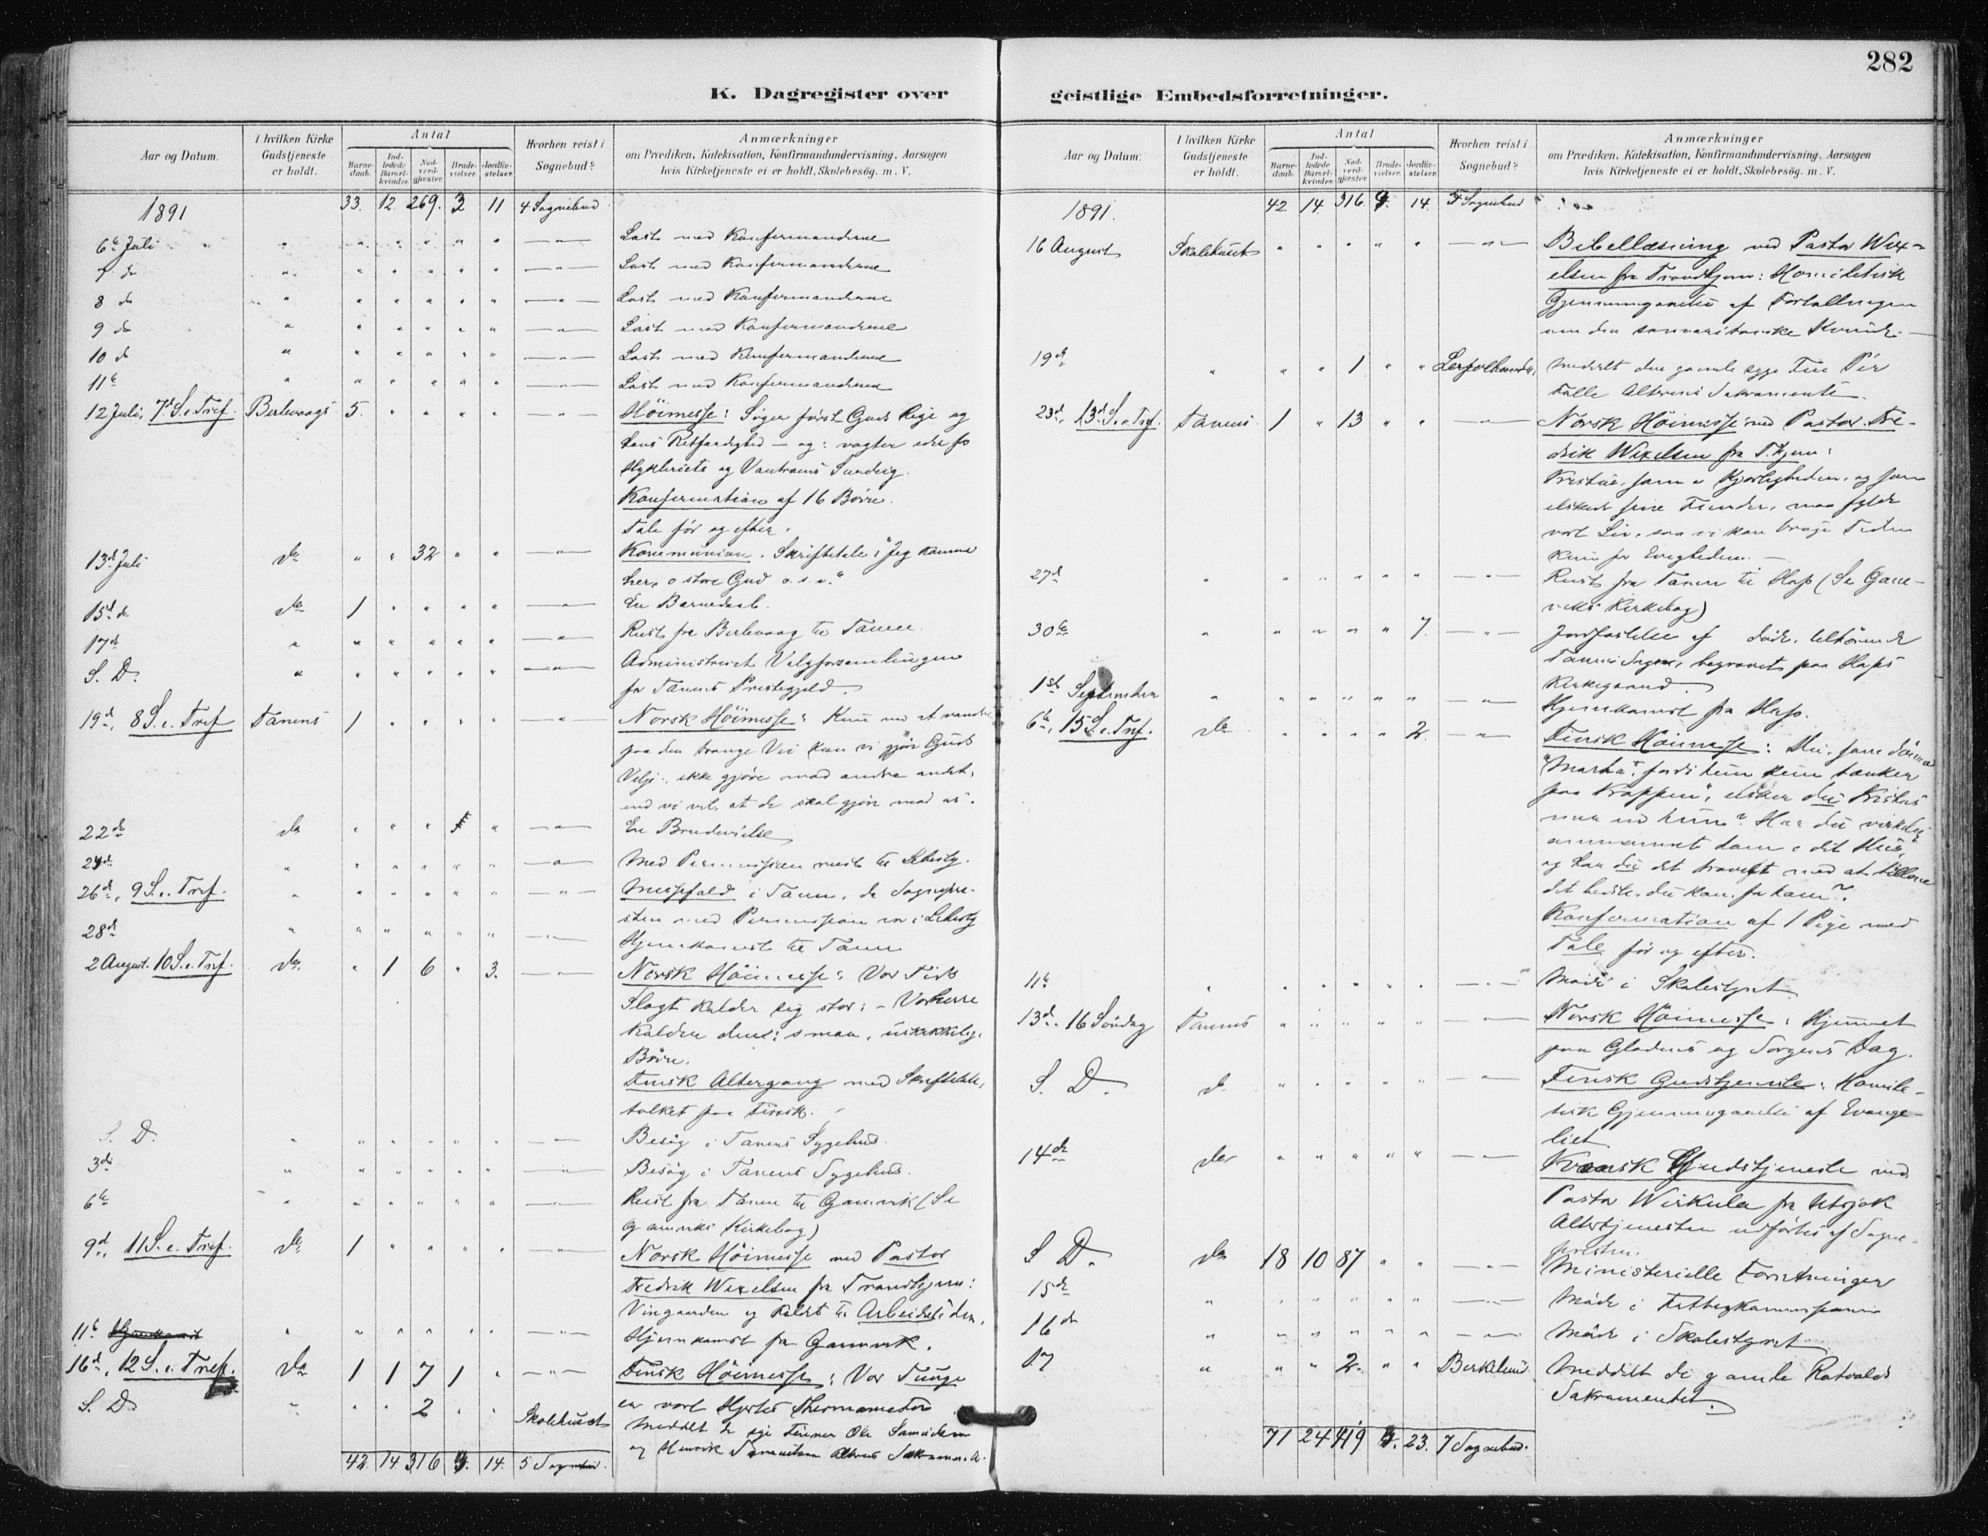 282
K. Dagregister over
Aar og Datum.
I hvilken Kirke Gudstjeneste er holdt.
Antal
Barne-daab.
Ind-ledede Barsel-kvinder.
Nad-verd-gjester.
Brude-vielser.
Jordfæ-stelser.
Hvorhen reist i Sognebud?
Anmærkninger
om Prædiken, Katekisation, Konfirmandundervisning, Aarsagen
hvis Kirketjeneste ei er holdt, Skolebesøg. m. V.
1891 33. 12. 269. 3 11 4 Sognebud
6te Juli Læst med Konfirmanderne
7 de Læst med Konfirmanderne
8 de Læst med Konfirmanderne
9 de Læst med Konfirmanderne
10 de Læst med Konfirmanderne
11te Læst med Konfirmanderne
12 Juli, 7d S. e. Tref. Berlevaags 5. Höimesse: Søger først Guds Rige og
hans Retfærdighed – og: vogter eder for
Hykleriets og Vantroens Surdeig.
Konfirmation af 16 Børn.
Tale før og efter.
13de Juli do 32 Kommunion. Skriftetale: "Jeg kommer
her, o store Gud o.s.v."
15d de do 1 En Barnedaab.
17de Reist fra Berlevaag til Tanen.
S. D. Administreret Valgforsamlingen
for Tanens Prestegjeld.
19de, 8 S. e. Tref Tanens 1 Norsk Höimesse: Kun ved at vandre
paa den trange Vei kan vi gjøre Guds
Vilje, ikke gjøre mod andre andet,
end vi vil, at de skal gjøre mod os.
22de do 1 En Brudevielse
24de Med Permission reist til Lebesby.
26de, 9 S. e. Tref. Messefald i Tanen, da Sognepre-
sten med Permission var i Lebesby
28de Hjemkomst til Tanen
2 August. 10 S. e. Tref. do. 1 6 3. Norsk Höimesse: Vor Tids
Slægt kalder sig stor; – Vorherre
kalder dens: smaa, uskikkelige
Børn.
Finsk Altergang med Skriftetale,
tolket paa Finsk.
S. D. Besøg i Tanens Sygehus.
3de Besøg i Tanens Sygehus.
6te Reist fra Tanen til Gamvik (Se
Gamviks Kirkebog)
9de, 11 S. e. Tref. do 1 Norsk Höimesse ved Pastor
Fredrik Wexelsen fra Trondhjem:
Vingaarden og Kaldet til Arbeidet i den.
11te Hjemkomst fra Gamvik.
16de, 12 S. e. Tref. do 1 1 7 1 Finsk Höimesse: Vor Tunge
er vort Hjertes Thermometer
S. D. 2 Skolehuset Meddelt de syge Finner Ole Samuelsen
og Henrik Altrens Sakramente.
42. 14 316 4. 14. 5 Sognebud.
geistlige Embedsforretninger.
Aar og Datum.
I hvilken Kirke Gudstjeneste er holdt.
Antal
Barne-daab.
Ind-ledede Barsel-kvinder.
Nad-verd-gjester.
Brude-vielser.
Jordfæ-stelser.
Hvorhen reist i Sognebud?
Anmærkninger
om Prædiken, Katekisation, Konfirmandundervisning, Aarsagen
hvis Kirketjeneste ei er holdt, Skolebesøg. m. V.
1891. 42. 14. 316. 4. 14. 5 Sognebud
16 August Skolehuset Bibellæsning ved Pastor Wex-
elsen fra Trondhjem: Homiletisk
Gjennemgaaelse af Fortællingen
om den samaritanske Kvinde.
19de 1 Meddelt den gamle syge Fin Per
Fælle Alterens Sakramente.
23de, 13de S. e. Tref. Tanens 1 13 Norsk Höimesse ved Pastor Fre-
drik Wexelsen fra T.hjem:
Kristus, som er Kjærligheden, og som
elskede sine Fiender, maa fylde
vort Liv, saa vi kan bruge Tiden
kun for Evigheden.
27de Reist fra Tanen til Hop (Se Gam-
viks Kirkebog)
30te 7. Jordfæstelse af døde, tilhørende
Tanens Sogn, begravet paa Hops
Kirkegaard.
1ste September Hjemkomst fra Hop.
6te, 15 S. e. Tref. do 2. Finsk Höimesse: Du, som dømmer
"Martha", fordi hun kun tænker
paa "Kroppen", elsker du Kristus
mer end hun? Har du virkelig
annammet ham i dit Hus
og har du det travelt med at tillave
det bedste, du kan, for ham?
Konfirmation af 1 Pige med
Tale før og efter.
11te Møde i Skolestyret.
13de. 16 Søndag Tanens Norsk Höimesse: Hjemmet
paa Glædens og Sorgens Dag.
S. D. do Finsk Gudstjeneste: Homile-
tisk Gjennemgaaelse af Evange-
liet
14de do Kvænsk Gudstjeneste ved
Pastor Wirkula fra Utsjok
Altertjenesten udførtes af Sogne-
presten.
S. D. do 18 10 87 Ministerielle Forretninger
15de Møde i Fattigkommissionen
16de Møde i Skolestyret
17 2. Meddelt de gamle
Sakramentet.
71 24 419 4. 23. 7 Sognebud.